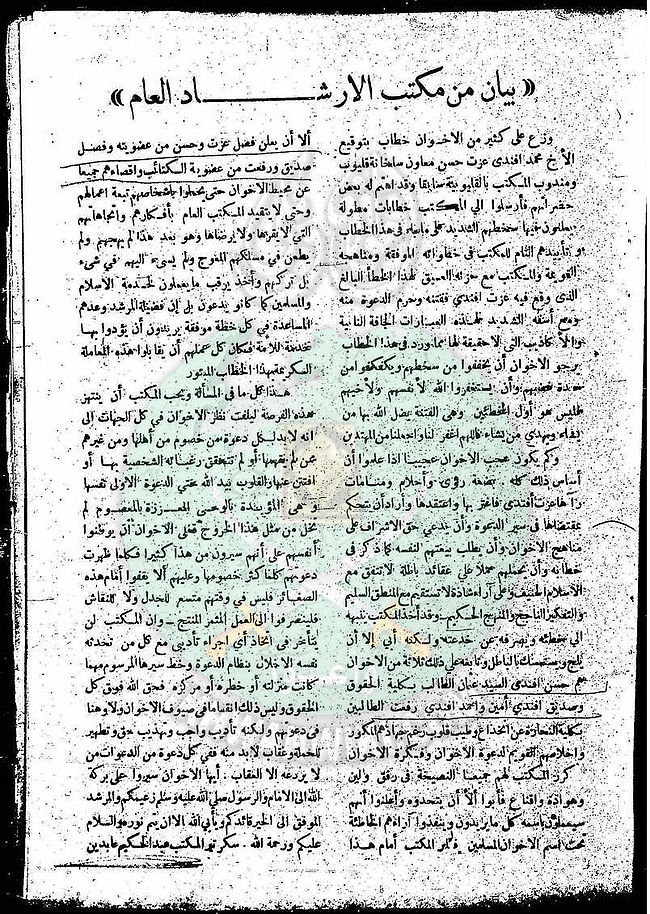 « بيان من مكتب الارشــــــاد العام »
وزع على كثير من الاخوان خطاب بتوقيع
الأخ محمد افندى عزت حسن معاون سلخانة قليوب
ومندوب المكتب بالقليوبية سابقا وقد اهم له بعض
حضراتهم فأرسلوا الى المكتب خطابات مطولة
يعلنون فيها سخطهم الشديد على ماجاء فى هذا الخطاب
وتأييدهم التام للمكتب فى خطواته الموفقة ومناهجه
القويمة والمكتب مع حزنه العميق لهذا الخطأ البالغ
الذى وقع فيه عزت افندى ففتنه وحرم الدعوة منه
ومع أسفه الشديد لهذه العبارات الجافة النابية
والأكاذيب التى لا حقيقة لها مما ورد فى هذا الخطاب
يرجو الاخوان أن يخففوا من سخطهم ويكفكفوا من
حدة غضبهم وأن يستغفروا الله لأنفسهم ولأخيهم
فليس هو أول المخطئين وهى الفتنة يضل الله بها من
يشاء ويهدى من يشاء فاللهم اغفر لنا واجعلنا من المهتدين
وكم يكون عجب الاخوان عجيبا اذا علموا أن
أساس ذلك كله بضعة رؤى وأحلام ومنامات
رآها عزت أفندى فاغتر بها واعتقدها وأراد أن يتحكم
بمقتضاها فى سير الدعوة وأن يدعى حق الاشراف على
مناهج الاخوان وأن يطلب بيعتهم لنفسه كما ذكر فى
خطابه وأن يحملهم حملا على عقائد باطلة لا تتفق مع
الاسلام الحنيف وعلى آراء شاذة لا تستقيم مع المنطق السليم
والتفكير الناجح والمنهج الحكيم وقد أخذ المكتب ينبهه
الى خطئه ويصرفه عن خدعته ولكنه أبى إلا أن
يلج ويستمسك بالباطل وتابعه على ذلك ثلاثة من الاخوان
هم حسن افندى السيد عثمان الطالب بكلية الحقوق
وصديق افندى أمين واحمد افندى رفعت الطالبين
بكلية التجارة عن انخداع وطيب قلوب رغم جهادهم المذكور
واخلاصهم القويم لدعوة الاخوان وفكرة الاخوان
كرر المكتب لهم جميعا النصيحة فى رفق ولين
وهوادة واقناع فأبوا ألا أن يتحدوه وأعلنوا أنهم
سيعملون باسمه كل ما يريدون وينفذوا آراءهم الخاطئة
تحت اسم الاخوان المسلمين فلم ير المكتب أمام هذا
ألا أن يعلن فصل عزت وحسن من عضويته وفصل
صديق ورفعت من عضوية الكتائب واقصاءهم جميعا
عن محيط الاخوان حتى يتحملوا بأشخاصهم تبعة اعمالهم
وحتى لا يتقيد المكتب العام بأفكارهم واتجاهاتهم
التى لا يقرها ولا يرضاها وهو بعد هذا لم يهجهم ولم
يطعن فى مسلكهم المعوج ولم يسىء اليهم فى شىء
بل تركهم وأخذ يرقب ما يعملون لخدمة الأسلام
والمسلمين كما كانو يدعون بل إن فضيلة المرشد وعدهم
المساعدة فى كل خطة موفقة يريدون أن يؤدوا بها
خدمة للامة فكان كل عملهم أن يقابلوا هذه المعاملة
الكريمة بهذا الخطاب
هذا كل ما فى المسألة ويحب المكتب أن ينتهز
هذه الفرصة ليلفت نظر الاخوان فى كل الجهات إلى
انه لابد لكل دعوة من خصوم من أهلها ومن غيرهم
ممن لم يفهمها أو لم تتحقق رغباته الشخصية بها أو
افتتن عنها والقلوب بيد الله حتى الدعوة الاولى نفسها
وهى المؤيدة بالوحى المعززة بالمعصوم لم
تخل من مثل هذا الخروج فعلى الاخوان أن يوطنوا
أنفسهم على أنهم سيرون من هذا كثيرا فكلما ظهرت
دعوتهم كلما كثر خصومها وعليهم ألا يقفوا أمام هذه
الصغائر فليس فى وقتهم متسع للجدل ولا للنقاش
فلينصرفوا الى العمل المثمر المنتج - وان المكتب لن
يتأخر فى اتخاذ أى اجراء تأديبى مع كل من تحدثه
نفسه الاخلال بنظام الدعوة وخط سيرها المرسوم مهما
كانت منزلته أو خطره أو مركزه فحق الله فوق كل
الحقوق وليس ذلك انقساما فى صفوف الاخوان ولا وهنا
فى دعوتهم ولكنه تأديب واجب وتهذيب حق وتطهير
للحملة وعقاب لابد منه ففى كل دعوة من الدعوات من
لا يزدعه الا العقاب . أيها الاخوان سيروا على بركة
الله الى الامام والرسول صلى الله عليه وسلم زعيمكم والمرشد
الموفق الى الخير قائدكم ويأبى الله الا ان يتم نوره والسلام
عليكم ورحمة الله . سكرتير المكتب عبد الحكيم عابدين